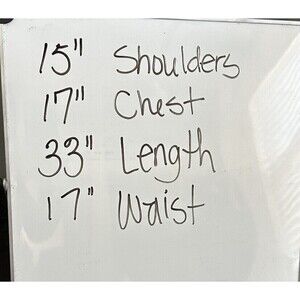 15" Shoulders
17" Chest
33" Length
17" Waist